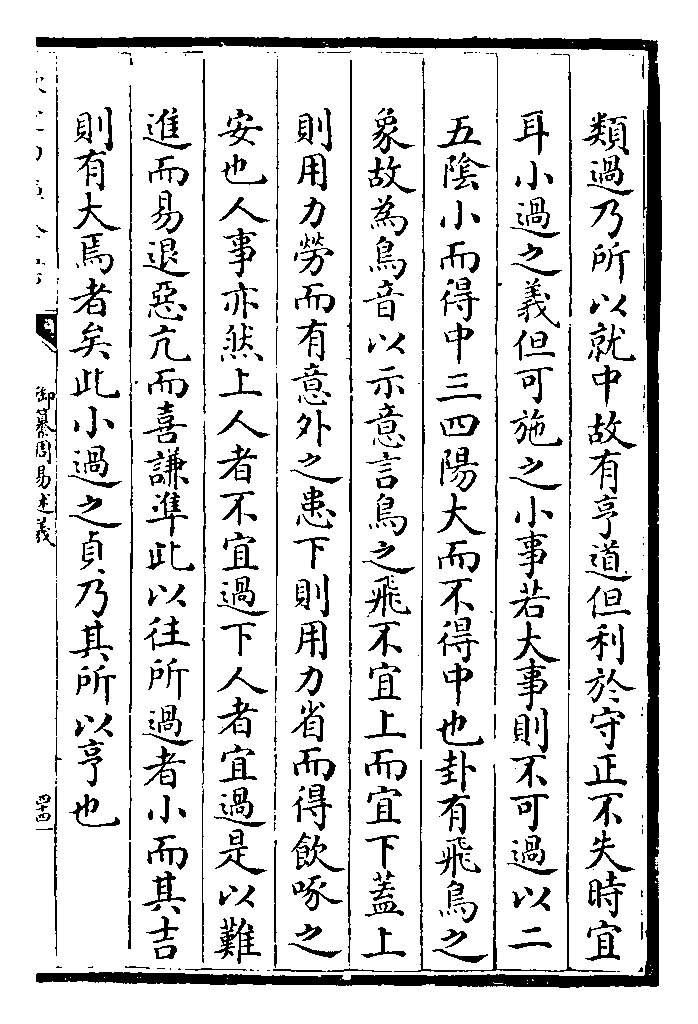 類過乃所以就中故有亨道但利於守正不失時宜
耳小過之義但可施之小事若大事則不可過以二
五陰小而得中三四陽大而不得中也卦有飛鳥之
象故為鳥音以示意言鳥之飛不宜上而宜下蓋上
則用力勞而有意外之患下則用力省而得飲啄之
安也人事亦然上人者不宜過下人者宜過是以難
進而易退惡亢而喜謙準此以往所過者小而其吉
則有大焉者矣此小過之貞乃其所以亨也
御纂周易述義